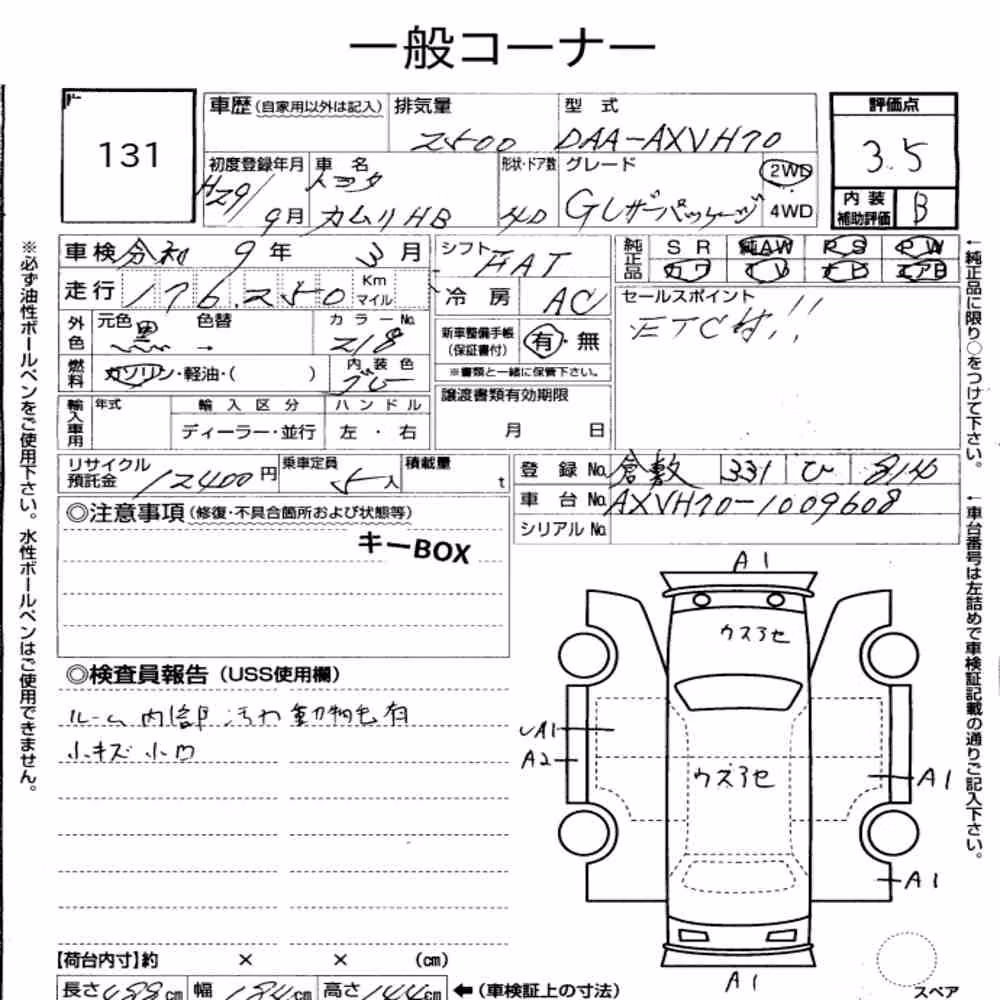 一般コーナー
131
車歴(自家用以外は記入)
排気量
2500
型 式
DAA-AXVH70
評価点
3.5
内装補助評価
B
初度登録年月
H29/
9月
車 名
トヨタ
カムリ HB
形状・ドア数
4D
グレード
Gレザーパッケージ
2WD
4WD
車検 令和 9年 3月
走行 176,250 Km マイル
シフト FAT
冷房 AC
純正品
SR 純AW PS PW
カワ TV ナビ エアB
外色 元色 黒 色替 →
カラーNo. 218
燃料 ガソリン・軽油・( )
内装色 グレー
新車整備手帳(保証書付) 有・無
※書類と一緒に保管下さい。
セールスポイント
ETC付!!
輸入車用 年式 輸入区分 ハンドル
ディーラー・並行 左・右
譲渡書類有効期限
月 日
リサイクル預託金 12400円
乗車定員 5人
積載量 t
登録No. 倉敷 331 ひ 814
車台No. AXVH70-1009608
シリアルNo.
◎注意事項(修復・不具合箇所および状態等)
キーBOX
◎検査員報告(USS使用欄)
ルーム内部汚れ 動物毛有
小キズ小凹
A1
ウスアセ
A1
A2
ウスアセ
A1
A1
A1
スペア
【荷台内寸】約 × × (cm)
長さ488cm 幅184cm 高さ144cm ←(車検証上の寸法)
※必ず油性ボールペンをご使用下さい。水性ボールペンはご使用できません。
←純正品に限り○をつけて下さい。
←車台番号は左詰めで車検証記載の通りご記入下さい。